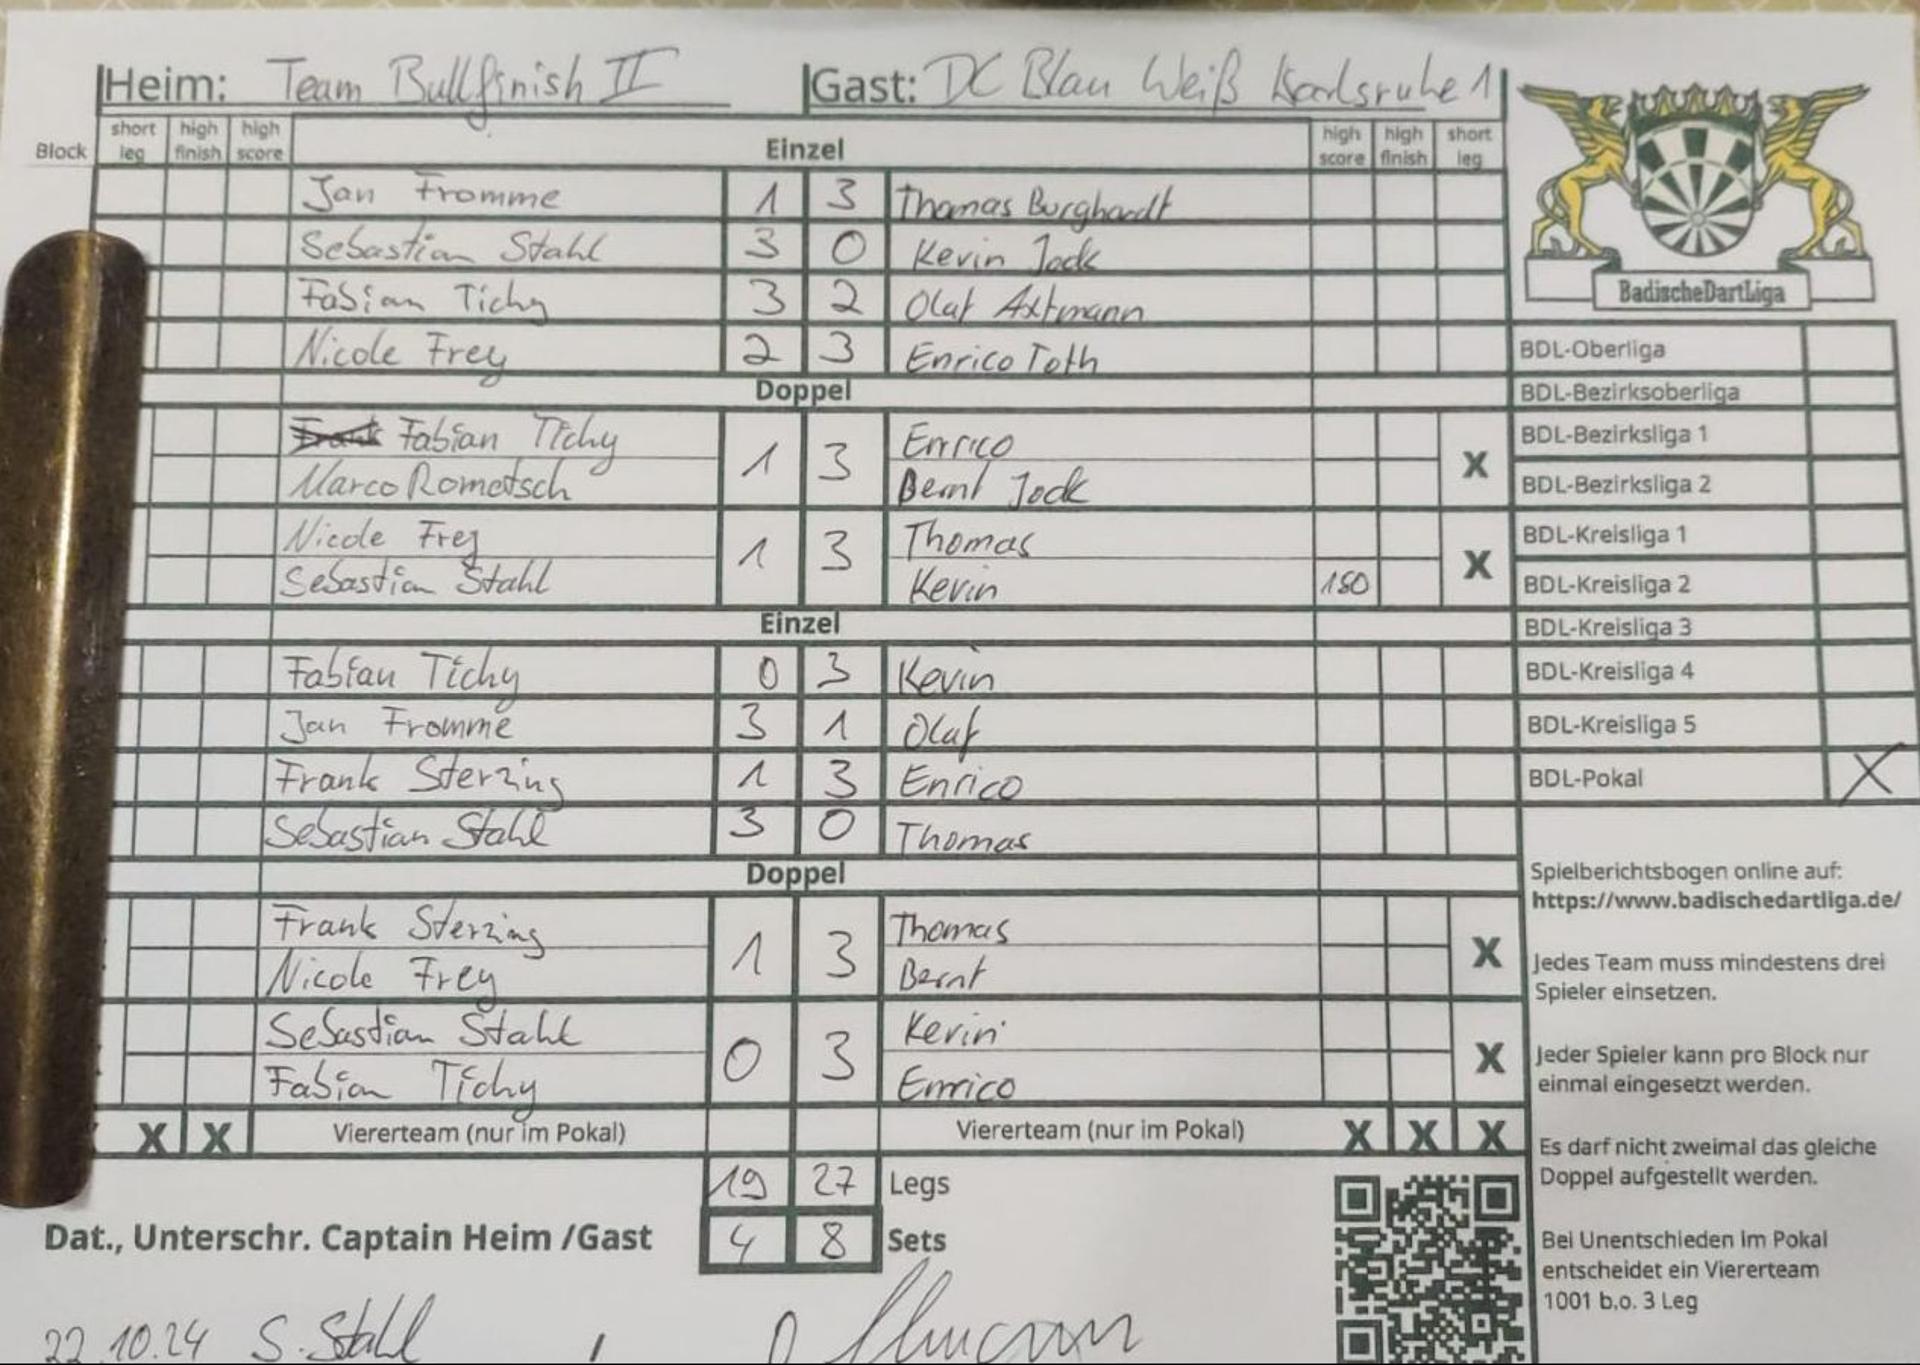 Heim: Team Bullfinish II Gast: DC Blau Weiß Karlsruhe 1
Block short leg high finish high score Einzel high score high finish short leg
Jan Fromme 1 3 Thomas Burghardt
Sebastian Stahl 3 0 Kevin Jock
Fabian Tichy 3 2 Olaf Axtmann
Nicole Frey 2 3 Enrico Toth
Doppel
Frank Fabian Tichy 1 3 Enrico
Marco Rometsch Bernt Jock X
Nicole Frey 1 3 Thomas
Sebastian Stahl Kevin 180 X
Einzel
Fabian Tichy 0 3 Kevin
Jan Fromme 3 1 Olaf
Frank Sterzing 1 3 Enrico
Sebastian Stahl 3 0 Thomas
Doppel
Frank Sterzing 1 3 Thomas
Nicole Frey Bernt X
Sebastian Stahl 0 3 Kevin
Fabian Tichy Enrico X
X X Viererteam (nur im Pokal) Viererteam (nur im Pokal) X X X
19 27 Legs
4 8 Sets
Dat., Unterschr. Captain Heim /Gast
22.10.24 S. Stahl
BadischeDartLiga
BDL-Oberliga
BDL-Bezirksoberliga
BDL-Bezirksliga 1
BDL-Bezirksliga 2
BDL-Kreisliga 1
BDL-Kreisliga 2
BDL-Kreisliga 3
BDL-Kreisliga 4
BDL-Kreisliga 5
BDL-Pokal X
Spielberichtsbogen online auf:
https://www.badischedartliga.de/
Jedes Team muss mindestens drei
Spieler einsetzen.
Jeder Spieler kann pro Block nur
einmal eingesetzt werden.
Es darf nicht zweimal das gleiche
Doppel aufgestellt werden.
Bei Unentschieden im Pokal
entscheidet ein Viererteam
1001 b.o. 3 Leg